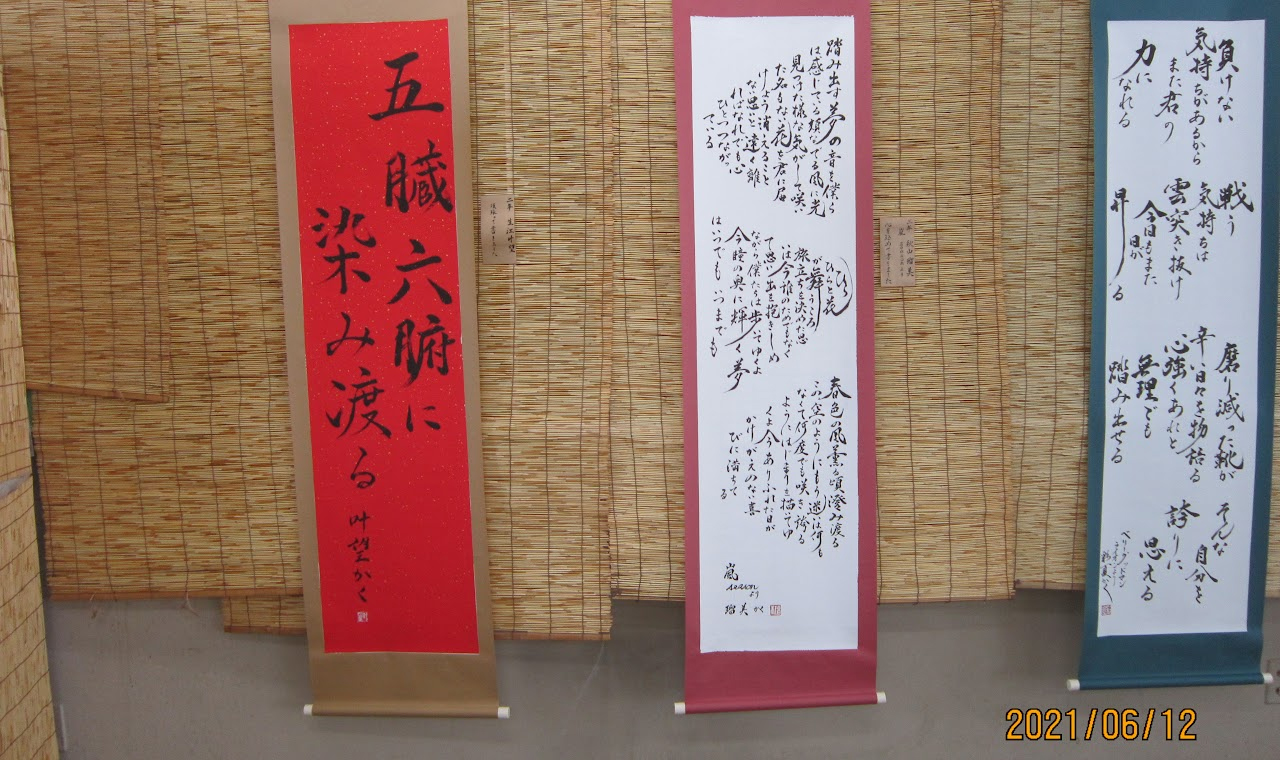 五臓六腑に
染み渡る
叶望かく
二年 生江叶望
踏み出す夢の音を僕ら
は感じてる頬なでる風に光
見つけた様な気がして咲い
た名もない花を君に届
けよう消えること
ない思いと遠く離
ればなれでも心
ひとつながっ
ている
ひらひらと花
が舞うころ
旅立ちを決めた思
は今誰のためでもなく
て思い出を抱きしめ
ながら僕たちは歩いてゆくよ
今瞳の奥に輝く夢
はいつでも いつまでも
春色の風薫る頃澄み渡る
この空のようにもう迷は何も
なくて何度でも咲き誇る
ようにはじまりを描いてゆ
くよ今ありふれた日が
かけがえのない喜
びに満ちて
る
嵐
より
瑠美かく
二年 秋山瑠美
負けない
気持ちがあるから
また君の
力に
なれる
戦う
気持ちは
雲突き抜け
今日もまた
日が
昇る
磨り減った靴が
辛い日々を物語る
心強くあれと
無理でも
踏み出せる
そんな
自分を
誇りに
思える
2021/06/12